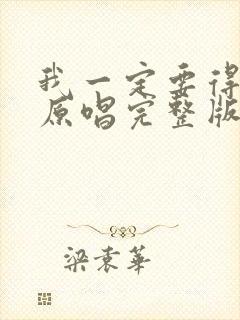 我一定要得
原唱完整版
梁袁華